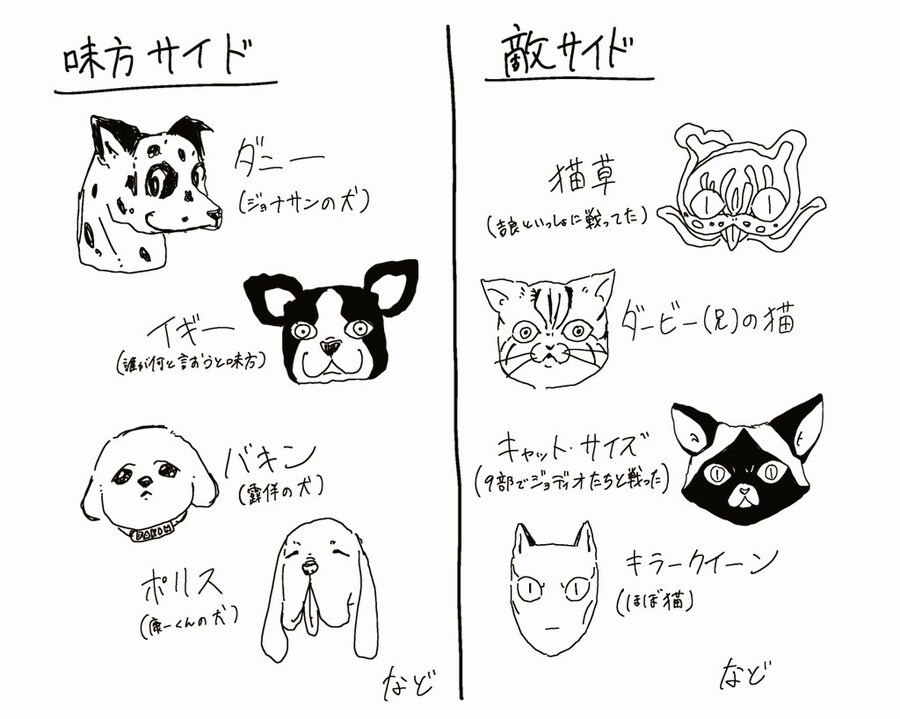 味方サイド
ダニー
(ジョナサンの犬)
イギー
(誰が何と言おうと味方)
バキン
(露伴の犬)
ポリス
(康一くんの犬)
など
敵サイド
猫草
(吉良といっしょに戦ってた)
ダービー(兄)の猫
キャット・サイズ
(9部でジョディオたちと戦った)
キラークイーン
(ほぼ猫)
など